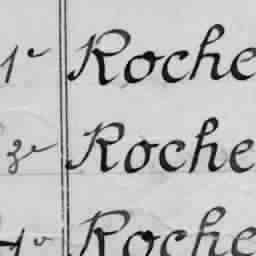 1e Roche
3e Roche
4e Roche